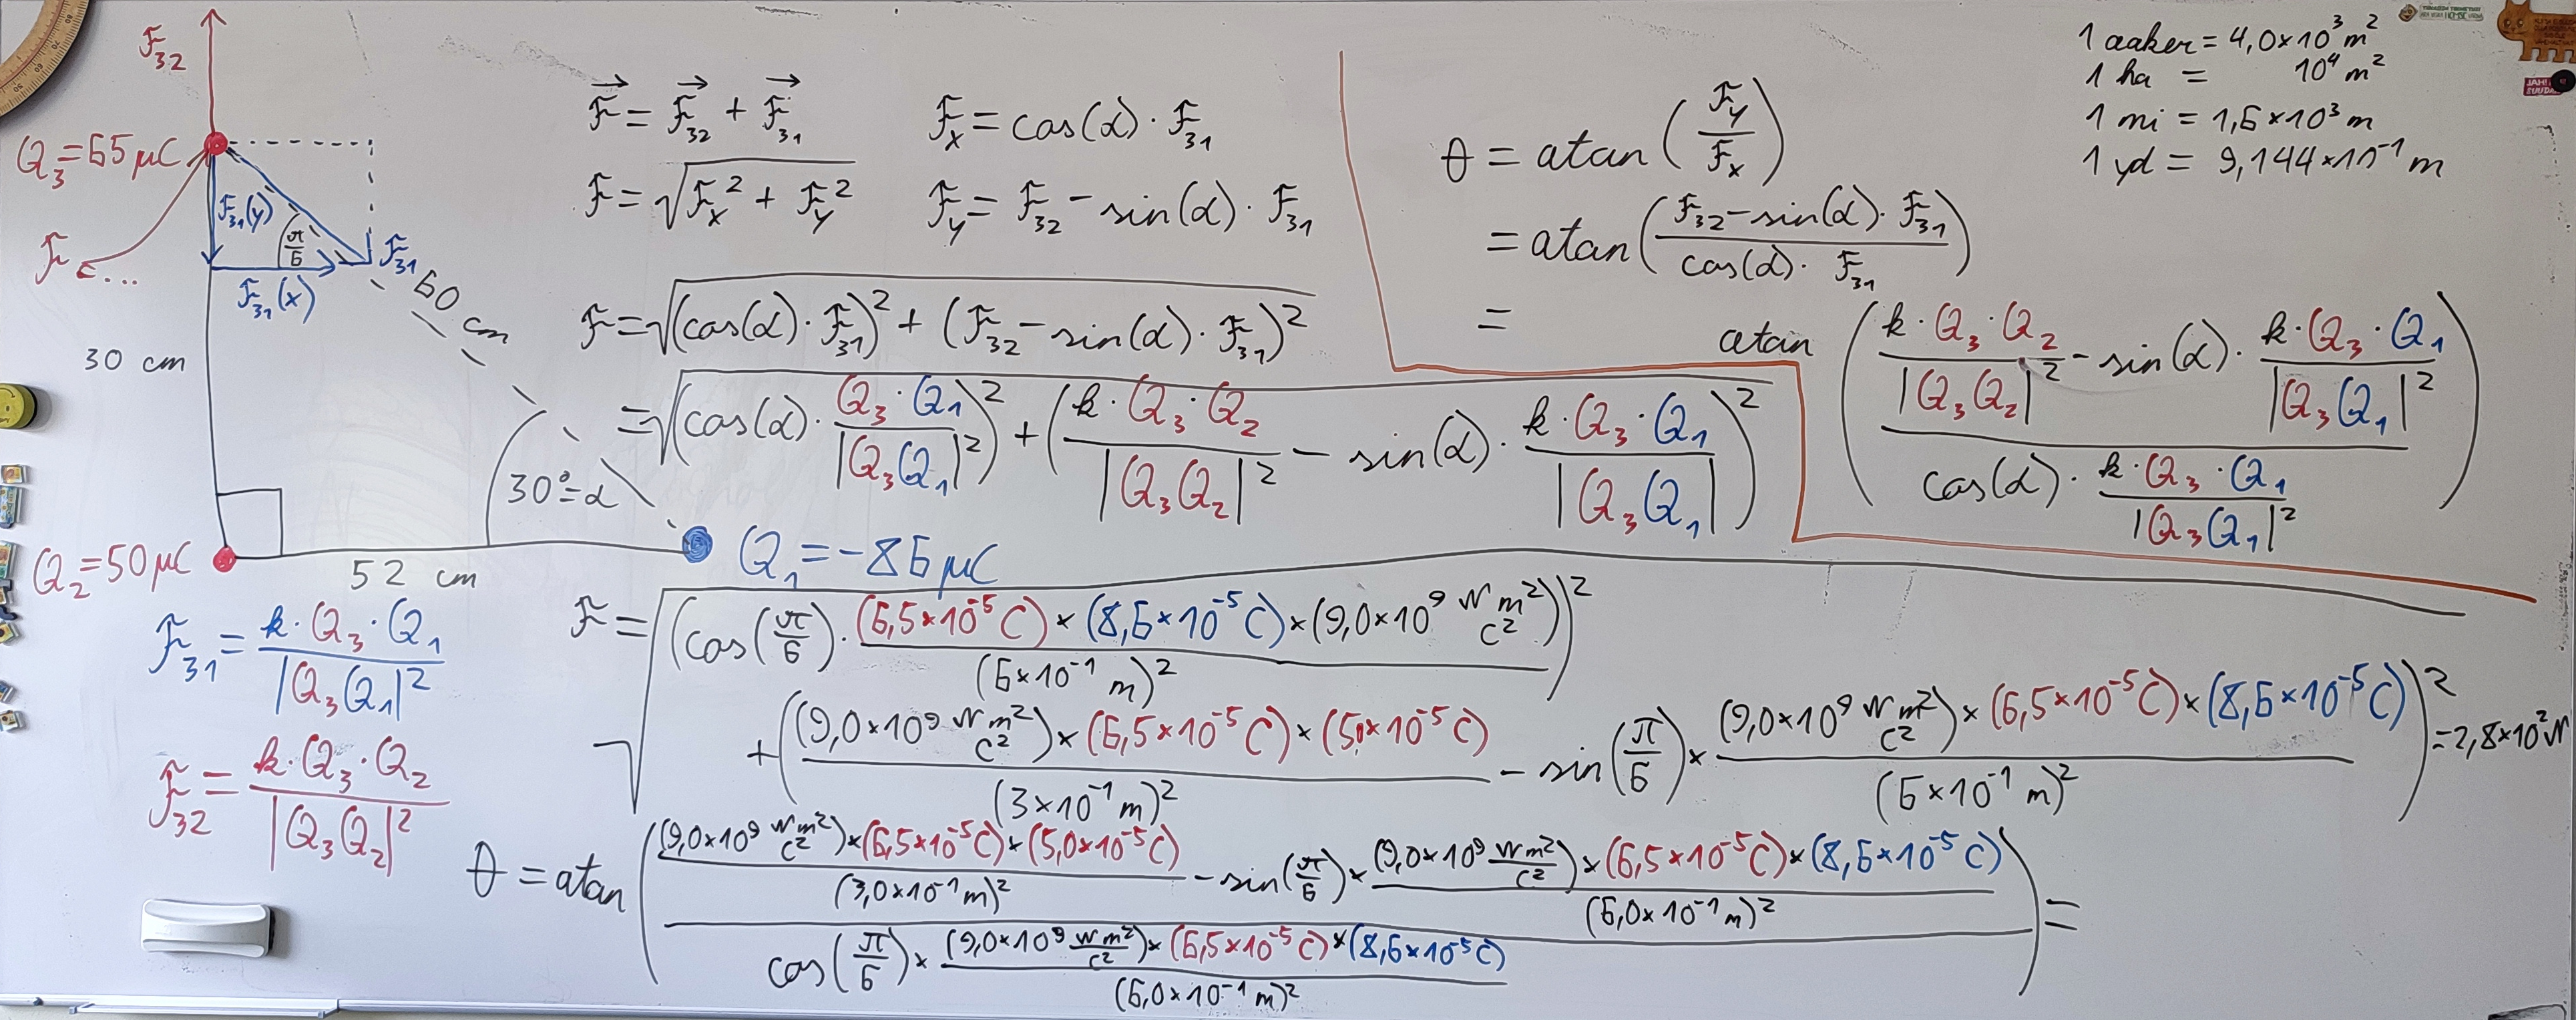 F₃₂
Q₃=65 μC
F₃₁(y)
π/6
F₃₁
F ...
F₃₁(x)
60 cm
30 cm
30°=α
Q₂=50 μC
52 cm
Q₁=-86 μC
F₃₁ = k·Q₃·Q₁/|Q₃Q₁|²
F₃₂ = k·Q₃·Q₂/|Q₃Q₂|²
F⃗ = F⃗₃₂ + F⃗₃₁
Fₓ = cos(α)·F₃₁
F = √(Fₓ² + F_y²)
F_y = F₃₂ - sin(α)·F₃₁
F = √((cos(α)·F₃₁)² + (F₃₂ - sin(α)·F₃₁)²)
= √((cos(α)·Q₃·Q₁/|Q₃Q₁|²)² + (k·Q₃·Q₂/|Q₃Q₂|² - sin(α)·k·Q₃·Q₁/|Q₃Q₁|²)²)
θ = atan(F_y/Fₓ)
= atan((F₃₂-sin(α)·F₃₁)/(cos(α)·F₃₁))
= atan((k·Q₃·Q₂/|Q₃Q₂|² - sin(α)·k·Q₃·Q₁/|Q₃Q₁|²)/(cos(α)·k·Q₃·Q₁/|Q₃Q₁|²))
1 aaker = 4,0×10³ m²
1 ha = 10⁴ m²
1 mi = 1,6×10³ m
1 yd = 9,144×10⁻¹ m
F = √((cos(π/6)·(6,5×10⁻⁵ C)×(8,6×10⁻⁵ C)×(9,0×10⁹ N m²/C²)/(6×10⁻¹ m)²)²
+((9,0×10⁹ N m²/C²)×(6,5×10⁻⁵ C)×(5,0×10⁻⁵ C)/(3×10⁻¹ m)² - sin(π/6)×(9,0×10⁹ N m²/C²)×(6,5×10⁻⁵ C)×(8,6×10⁻⁵ C)/(6×10⁻¹ m)²)²) =2,8×10² N
θ = atan(((9,0×10⁹ N m²/C²)×(6,5×10⁻⁵ C)×(5,0×10⁻⁵ C)/(3,0×10⁻¹ m)² - sin(π/6)×(9,0×10⁹ N m²/C²)×(6,5×10⁻⁵ C)×(8,6×10⁻⁵ C)/(6,0×10⁻¹ m)²)/(cos(π/6)×(9,0×10⁹ N m²/C²)×(6,5×10⁻⁵ C)×(8,6×10⁻⁵ C)/(6,0×10⁻¹ m)²)) =